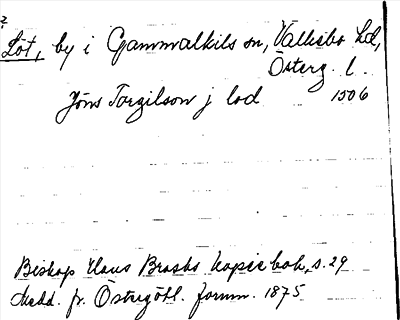 Löt, by i Gammalkils sn, Valkebo hd,
Österg. l.
Jöns Torgilson j lod 1506
Biskop Hans Brasks kopiebok, s. 29
Medd. fr. Östergötl. fornm. 1875